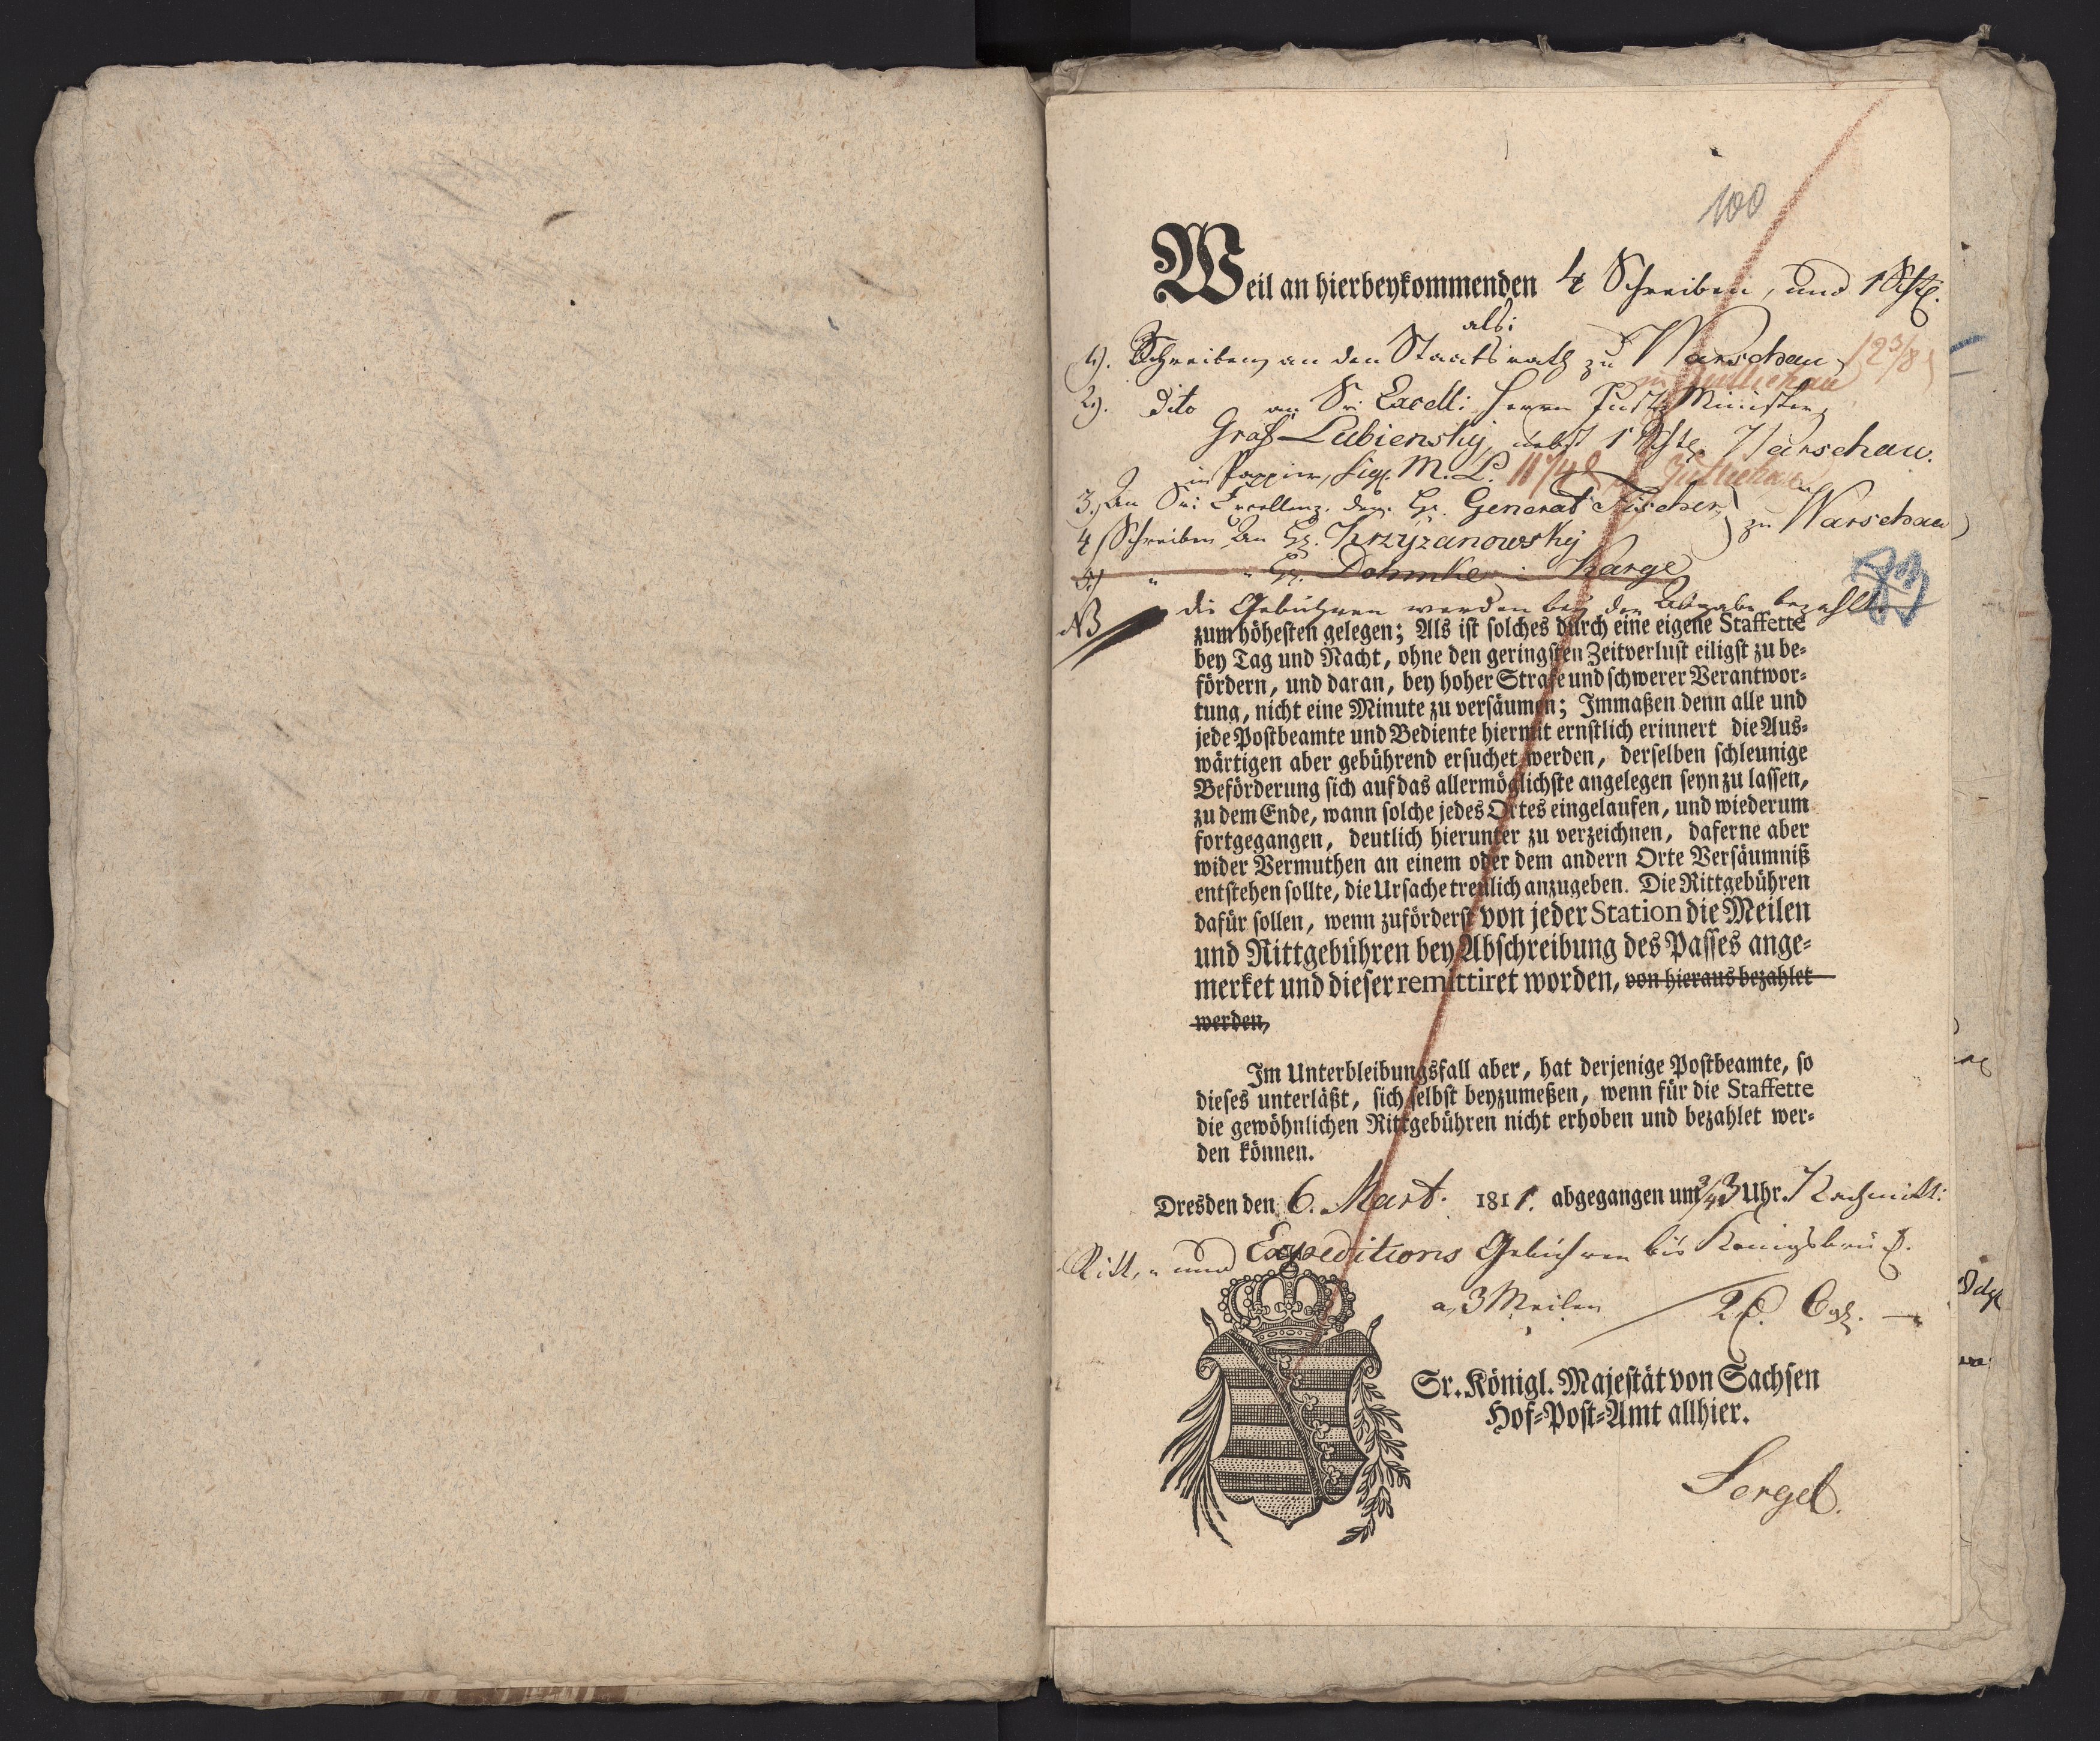 100
Weil an hierbeykommenden 4 Schreiben, und 1
als:
1). Schreiben an den Staatsrath zu Warschau 12 3/8
in Züllichau
2). dito an Sr: Excell: Herrn Justiz Minister,
Graf Lubiensky, nebst 1 Warschau.
in Pappier, sig. M. L. 11 1/4 Züllichau
3. An Sr: Excellenz. den Hr. General Fischer,
4 Schreiben An Hr. Krzyzanowsky zu Warschau
5) " " Hr. Dohmke : Karge
NB die Gebühren werden bey der Abgabe bezahlt.
zum höhesten gelegen; Als ist solches durch eine eigene Staffette
bey Tag und Nacht, ohne den geringsten Zeitverlust eiligst zu be-
fördern, und daran, bey hoher Strafe und schwerer Verantwor-
tung, nicht eine Minute zu versäumen; Immaßen denn alle und
jede Postbeamte und Bediente hiermit ernstlich erinnert die Aus-
wärtigen aber gebührend ersuchet werden, derselben schleunige
Beförderung sich auf das allermöglichste angelegen seyn zu lassen,
zu dem Ende, wann solche jedes Ortes eingelaufen, und wiederum
fortgegangen, deutlich hierunter zu verzeichnen, daferne aber
wider Vermuthen an einem oder dem andern Orte Versäumniß
entstehen sollte, die Ursache treulich anzugeben. Die Rittgebühren
dafür sollen, wenn zuförderst von jeder Station die Meilen
und Rittgebühren bey Abschreibung des Passes ange-
merket und dieser remittiret worden, von hieraus bezahlet
werden,
Im Unterbleibungsfall aber, hat derjenige Postbeamte, so
dieses unterläßt, sich selbst beyzumeßen, wenn für die Staffette
die gewöhnlichen Rittgebühren nicht erhoben und bezahlet wer-
den können.
Dresden den 6. Mart. 1811. abgegangen um 3/4 3 Uhr. Nachmitt:
Ritt, und Expeditions Gebühren bis Königsbrück.
a 3 Meilen 2 6
Sr. Königl. Majestät von Sachsen
Hof-Post-Amt allhier.
Sergel.